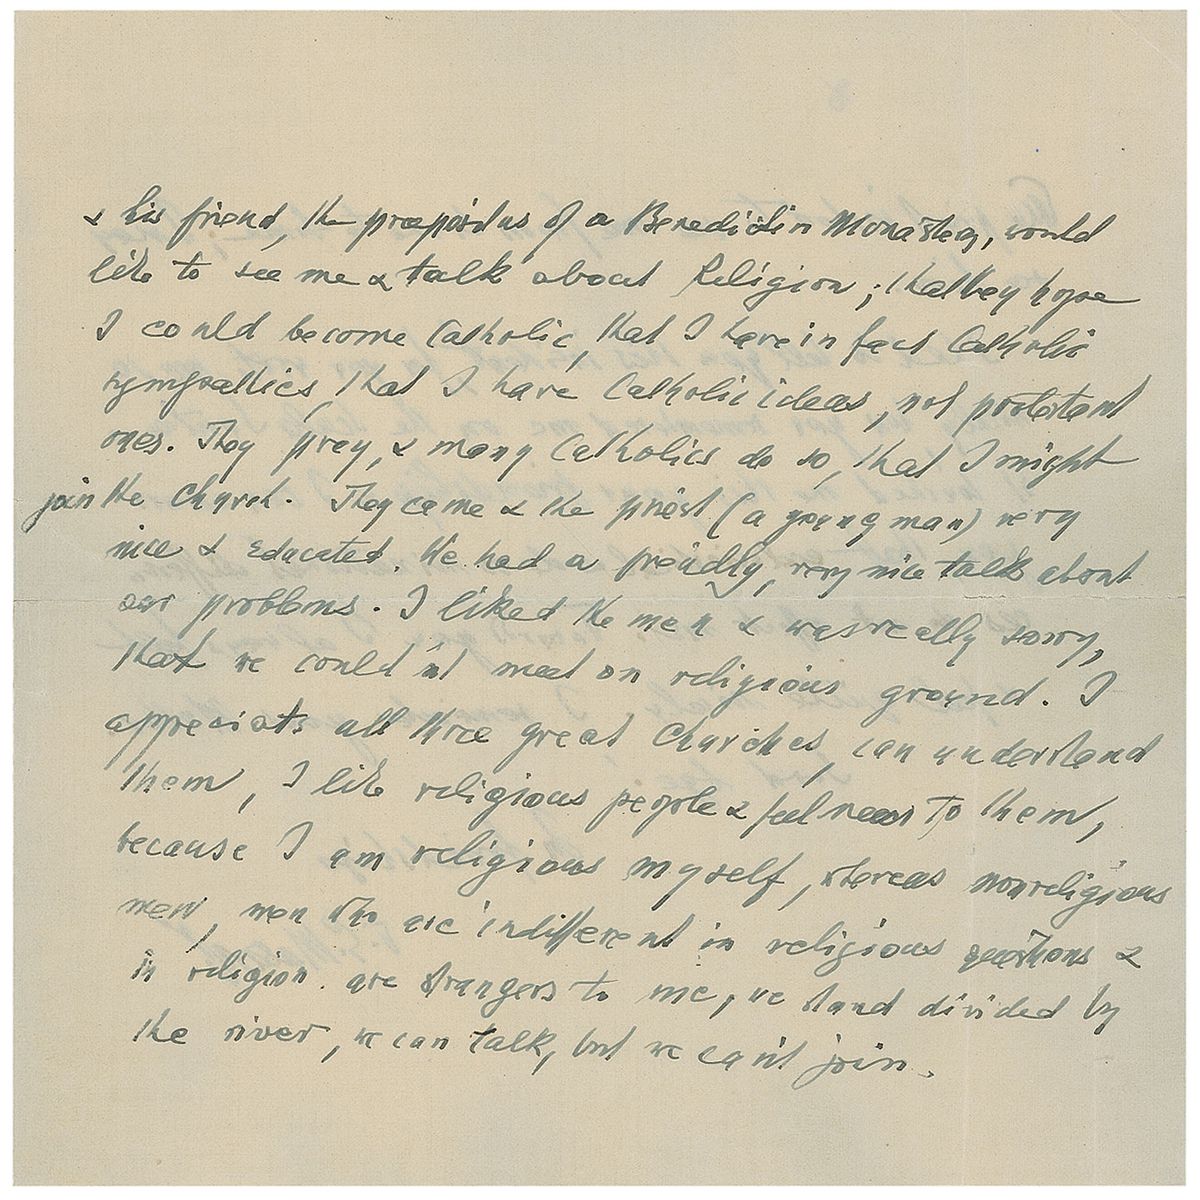 & his friend, the præpositus of a Benedictin Monastery, would
like to see me & talk about Religion; that they hope
I could become Catholic, that I have in fact Catholic
sympathies, that I have Catholic ideas, not protestant
ones. They prey, & many Catholics do so, that I might
join the Church. They came & the priest (a young man) very
nice & educated. We had a friendly, very nice talk about
our problems. I liked the man & was really sorry,
that we could'nt meet on religious ground. I
appreciate all three great Churches, can understand
them, I like religious people & feel near to them,
because I am religious myself, whereas nonreligious
men, men who are indifferent in religious questions &
in religion are strangers to me, we stand divided by
the river, we can talk, but we can't join.